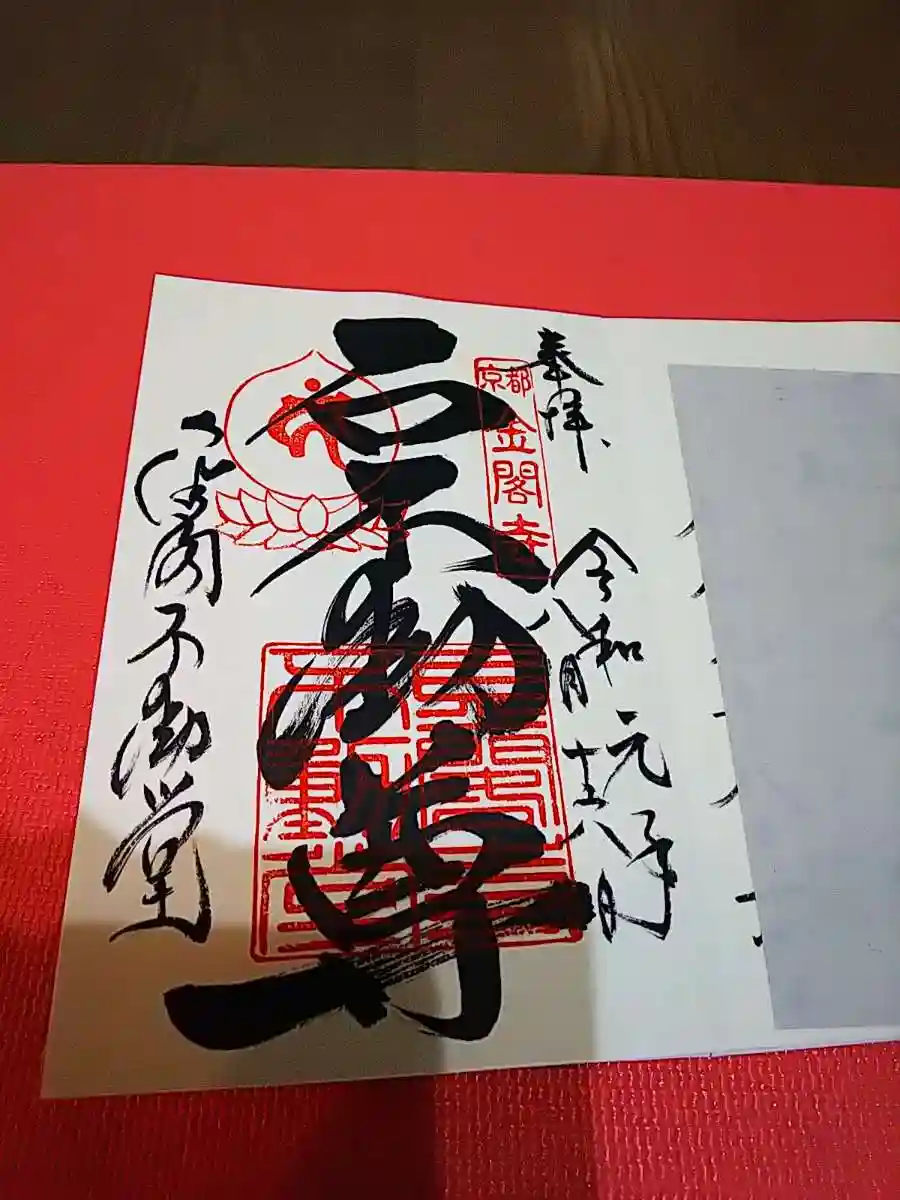 奉拝
令和元年
八月十六日
京都
金閣寺
石不動尊
金閣不動堂